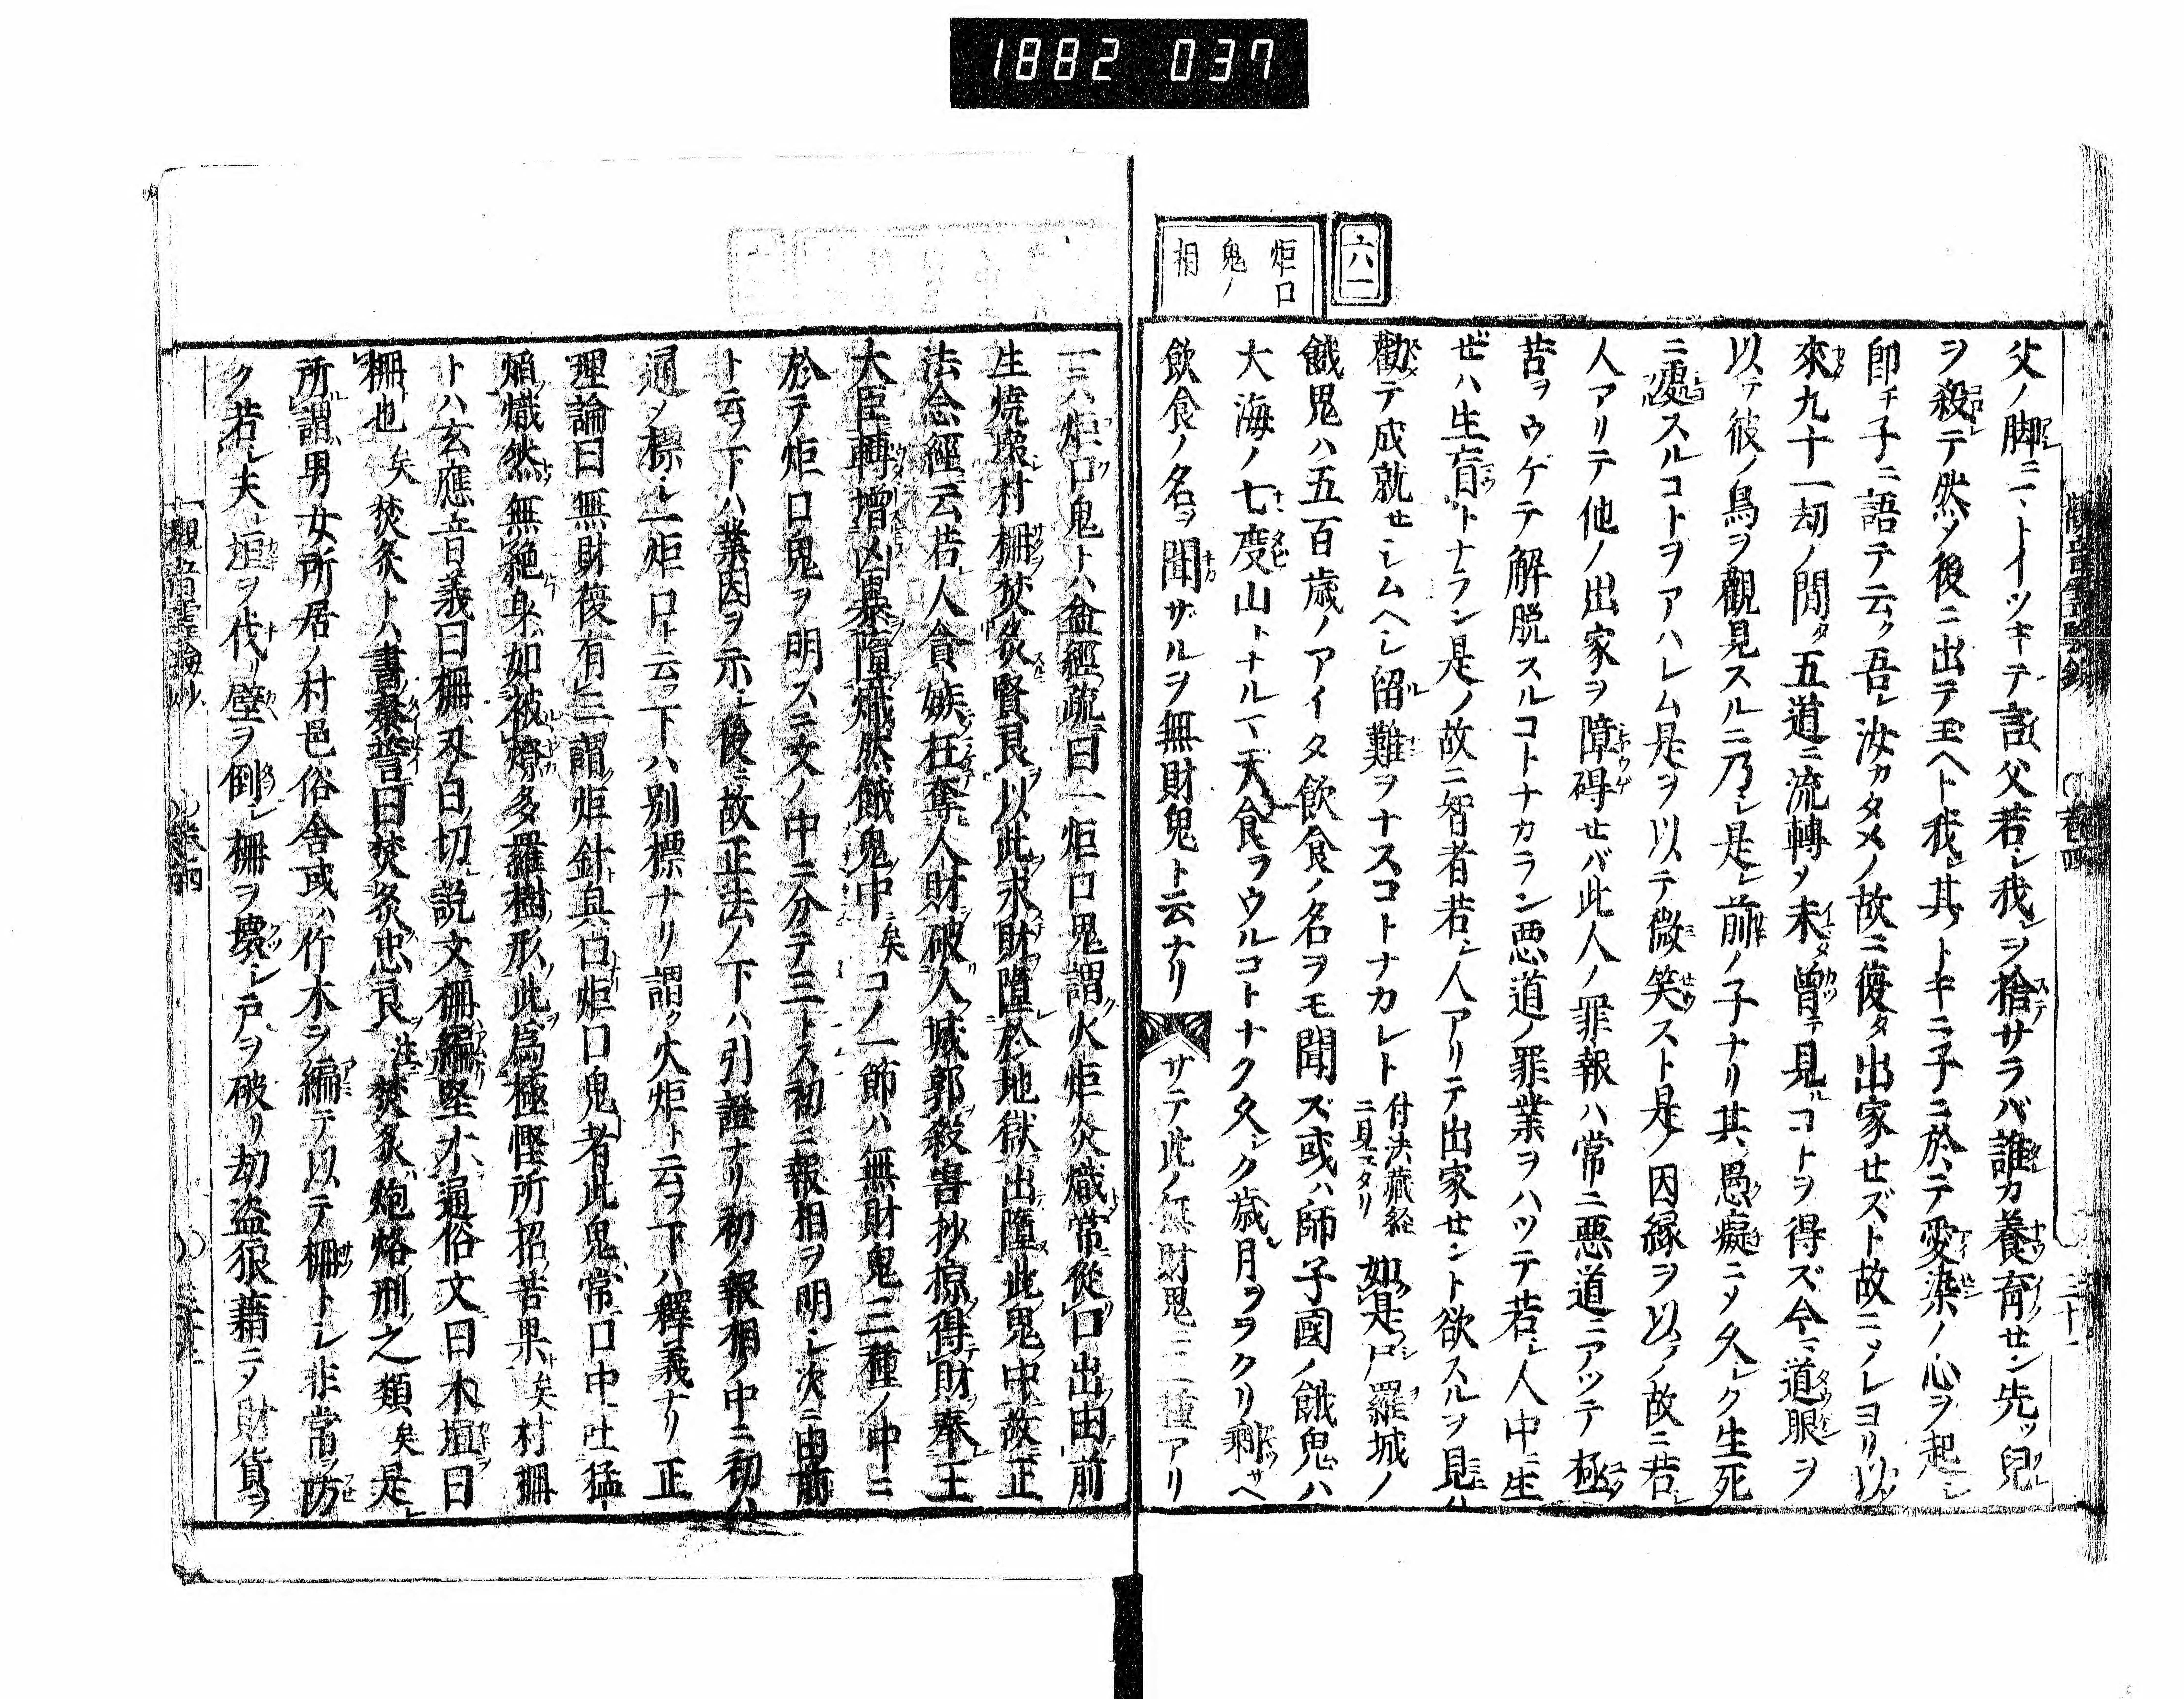 1882 037
六一
炬口
鬼ノ
相
父ノ脚ニトイツキテ言ク父若シ我ヲ捨サラバ誰カ養育セン先ツ兒
ヲ殺テ然ノ後ニ出テ玉ヘト我其トキニ子ニ於テ愛染ノ心ヲ起シ
即チ子ニ語テ云ク吾レ汝カタメノ故ニ復タ出家セズト故ニメレヨリ以
來九十一劫ノ間タ五道ニ流轉メ未タ曾テ見ルコトヲ得ズ今マ道眼ヲ
以テ彼ノ鳥ヲ觀見スルニ乃シ是レ前ノ子ナリ其愚癡ニメ久シク生死
ニ處スルコトヲアハレム是ヲ以テ微笑スト是ノ因縁ヲ以テノ故ニ若シ
人アリテ他ノ出家ヲ障碍セバ此人ノ罪報ハ常ニ悪道ニアツテ極
苦ヲウケテ解脱スルコトナカラン悪道ノ罪業ヲハツテ若シ人中ニ生
ゼハ生盲トナラン是ノ故ニ智者若シ人アリテ出家セント欲スルヲ見ハ
勸テ成就セシムヘシ留難ヲナスコトナカレト 付法藏経ニ見エタリ 如是尸羅城ノ
餓鬼ハ五百歳ノアイタ飲食ノ名ヲモ聞ズ或ハ師子國ノ餓鬼ハ
大海ノ七度山トナルマテ食ヲウルコトナク久シク歳月ヲヲクリ剰サヘ
飲食ノ名ヲ聞ザルヲ無財鬼ト云ナリ サテ此ノ無財鬼ニ三種アリ
一ハ炬口鬼トハ盆經疏曰一炬口鬼謂火炬炎熾常從口出由前
生燒塚村柵焚炙賢良以此求財墮於地獄出墮此鬼中故正
法念經云若人貪嫉枉奪人財破人城郭殺害抄掠得財奉王
大臣轉增凶暴墮熾然餓鬼中矣コノ一節ハ無財鬼三種ノ中ニ
於テ炬口鬼ヲ明スニ文ノ中ニ分テ三トス初ニ報相ヲ明シ次ニ由前
ト云フ下ハ業因ヲ示シ後ニ故正法ノ下ハ引證ナリ初ノ報相ノ中ニ初ハ
通メ標シ一炬口ト云フ下ハ別標ナリ謂ク火炬ト云ヲ下ハ釋義ナリ正
理論曰無財復有三謂炬針臭口炬口鬼者此鬼常口中吐猛
焰熾然無絶身如被燎多羅樹形此為極慳所招苦果矣村柵
トハ玄應音義曰柵刄白切説文柵編竪木通俗文曰木垣曰
柵也矣焚炙トハ書泰誓曰焚炙忠良註焚炙炮烙刑之類矣是レ
所謂男女所居ノ村邑俗舍或ハ竹木ヲ編テ以テ柵トシ非常ヲ防
ク若シ夫レ垣ヲ代リ壁ヲ倒シ柵ヲ壞シ戸ヲ破リ劫盗狠藉ニメ財貨ヲ
觀音霊驗鈔 巻四